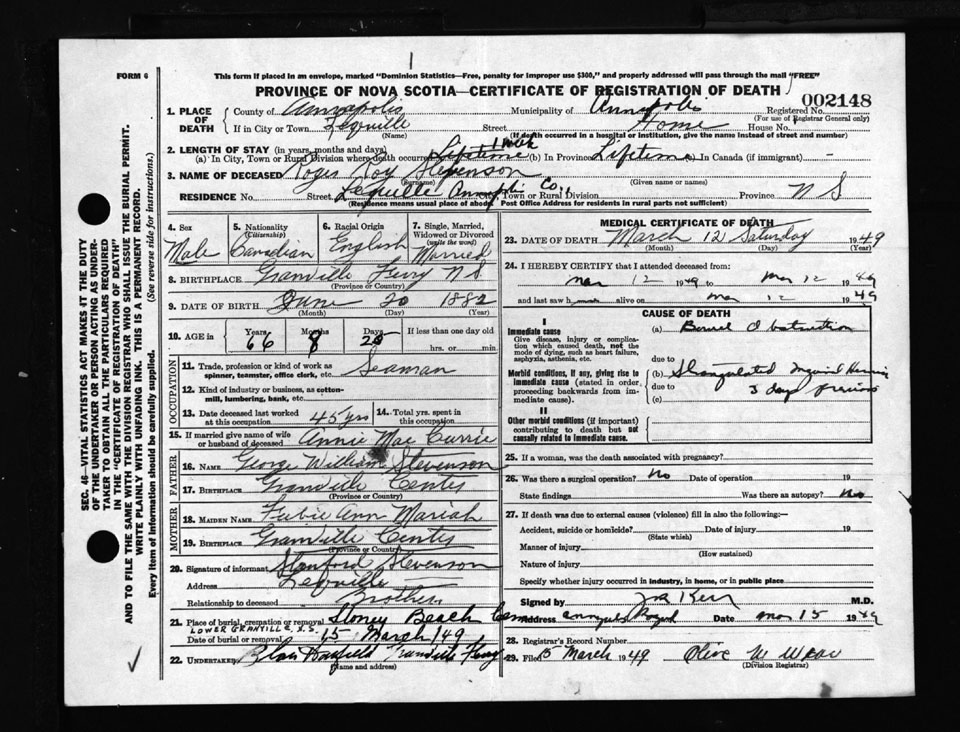 FORM 6
This form if placed in an envelope, marked "Dominion Statistics—Free, penalty for improper use $300," and properly addressed will pass through the mail "FREE"
PROVINCE OF NOVA SCOTIA—CERTIFICATE OF REGISTRATION OF DEATH
002148
1. PLACE OF DEATH
County of Annapolis Municipality of Annapolis Registered No.
(For use of Registrar General only)
If in City or Town Street Home House No.
(Name) (If death occurred in a hospital or institution, give the name instead of street and number)
2. LENGTH OF STAY (in years, months and days)
(a) In City, Town or Rural Division where death occurred Lifetime (b) In Province Lifetime (c) In Canada (if immigrant) -
3. NAME OF DECEASED Roy Stevenson
(Surname) (Given name or names)
RESIDENCE No. Street Lequille Annapolis Co., City, Town or Rural Division Province N S
(Residence means usual place of abode. Post Office Address for residents in rural parts not sufficient)
4. Sex
Male
5. Nationality (Citizenship)
Canadian
6. Racial Origin
English
7. Single, Married, Widowed or Divorced (write the word)
Married
8. BIRTHPLACE Granville Ferry N S
(Province or Country)
9. DATE OF BIRTH June 20 1882
(Month) (Day) (Year)
10. AGE in Years Months Days If less than one day old
66 8 hrs. or min.
OCCUPATION
11. Trade, profession or kind of work as spinner, teamster, office clerk, etc. Seaman
12. Kind of industry or business, as cotton-mill, lumbering, bank, etc.
13. Date deceased last worked at this occupation 45 yrs
14. Total yrs. spent in this occupation
15. If married give name of wife or husband of deceased Annie Mae Currie
FATHER
16. NAME George William Stevenson
17. BIRTHPLACE Granville Center
(Province or Country)
MOTHER
18. MAIDEN NAME Ann Mariah
19. BIRTHPLACE Granville Center
(Province or Country)
20. Signature of informant Stanford Stevenson
Address
Relationship to deceased Brother
21. Place of burial, cremation or removal Stoney Beach Cem
LOWER GRANVILLE N.S.
Date of burial or removal 15 March/49
22. UNDERTAKER Granville Ferry
(Name and address)
MEDICAL CERTIFICATE OF DEATH
23. DATE OF DEATH March 12 Saturday 1949
(Month) (Day) (Year)
24. I HEREBY CERTIFY that I attended deceased from:
mar 12 1949 to mar 12 1949
and last saw h alive on mar 12 1949
CAUSE OF DEATH
I
Immediate cause
Give disease, injury or complication which caused death, not the mode of dying, such as heart failure, asphyxia, asthenia, etc.
(a) Bowel Obstruction
due to
Morbid conditions, if any, giving rise to immediate cause (stated in order, proceeding backwards from immediate cause).
(b) Strangulated Inguinal Hernia
due to 3 days previous
(c)
II
Other morbid conditions (if important) contributing to death but not causally related to immediate cause.
25. If a woman, was the death associated with pregnancy?
26. Was there a surgical operation? No Date of operation 19
State findings Was there an autopsy? No
27. If death was due to external causes (violence) fill in also the following:—
Accident, suicide or homicide? Date of injury 19
(State which)
Manner of injury
(How sustained)
Nature of injury
Specify whether injury occurred in industry, in home, or in public place
Signed by Kerr M.D.
Address Annapolis Royal Date mar 15 1949
28. Registrar's Record Number
29. Filed 15 March 1949 Olive W
(Division Registrar)
SEC. 46—VITAL STATISTICS ACT MAKES IT THE DUTY OF THE UNDERTAKER OR PERSON ACTING AS UNDERTAKER TO OBTAIN ALL THE PARTICULARS REQUIRED IN THE "CERTIFICATE OF REGISTRATION OF DEATH" AND TO FILE THE SAME WITH THE DIVISION REGISTRAR WHO SHALL ISSUE THE BURIAL PERMIT.
WRITE PLAINLY WITH UNFADING INK. THIS IS A PERMANENT RECORD.
Every item of information should be carefully supplied. (See reverse side for instructions.)